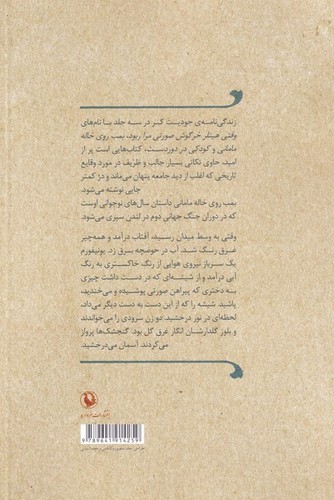 زندگی‌نامه‌ی جودیت کر در سه جلد با نام‌های
وقتی هیتلر خرگوش صورتی مرا ربود، بمب روی خاله
مامانی و کودکی در دوردست، کتاب‌هایی است پر از
امید، حاوی نکاتی بسیار جالب و ظریف در مورد وقایع
تاریخی که اغلب از دید جامعه پنهان می‌ماند و در کمتر
جایی نوشته می‌شود.
بمب روی خاله مامانی داستان سال‌های نوجوانی اوست
که در دوران جنگ جهانی دوم در لندن سپری می‌شود.
وقتی به وسط میدان رسید، آفتاب درآمد و همه‌چیز
غرق رنگ شد. آب در حوضچه برق زد. یونیفورم
یک سرباز نیروی هوایی از رنگ خاکستری به رنگ
آبی درآمد و از شیشه‌ای که در دست داشت چیزی
به دختری که پیراهن صورتی پوشیده و می‌خندید،
پاشید. شیشه را که از این دست به دست دیگر می‌داد،
لحظه‌ای در نور درخشید. دو زن سرودی را می‌خواندند
و بلوز گلدارشان انگار غرق گل بود. گنجشک‌ها پرواز
می‌کردند. آسمان می‌درخشید.
9789641914259